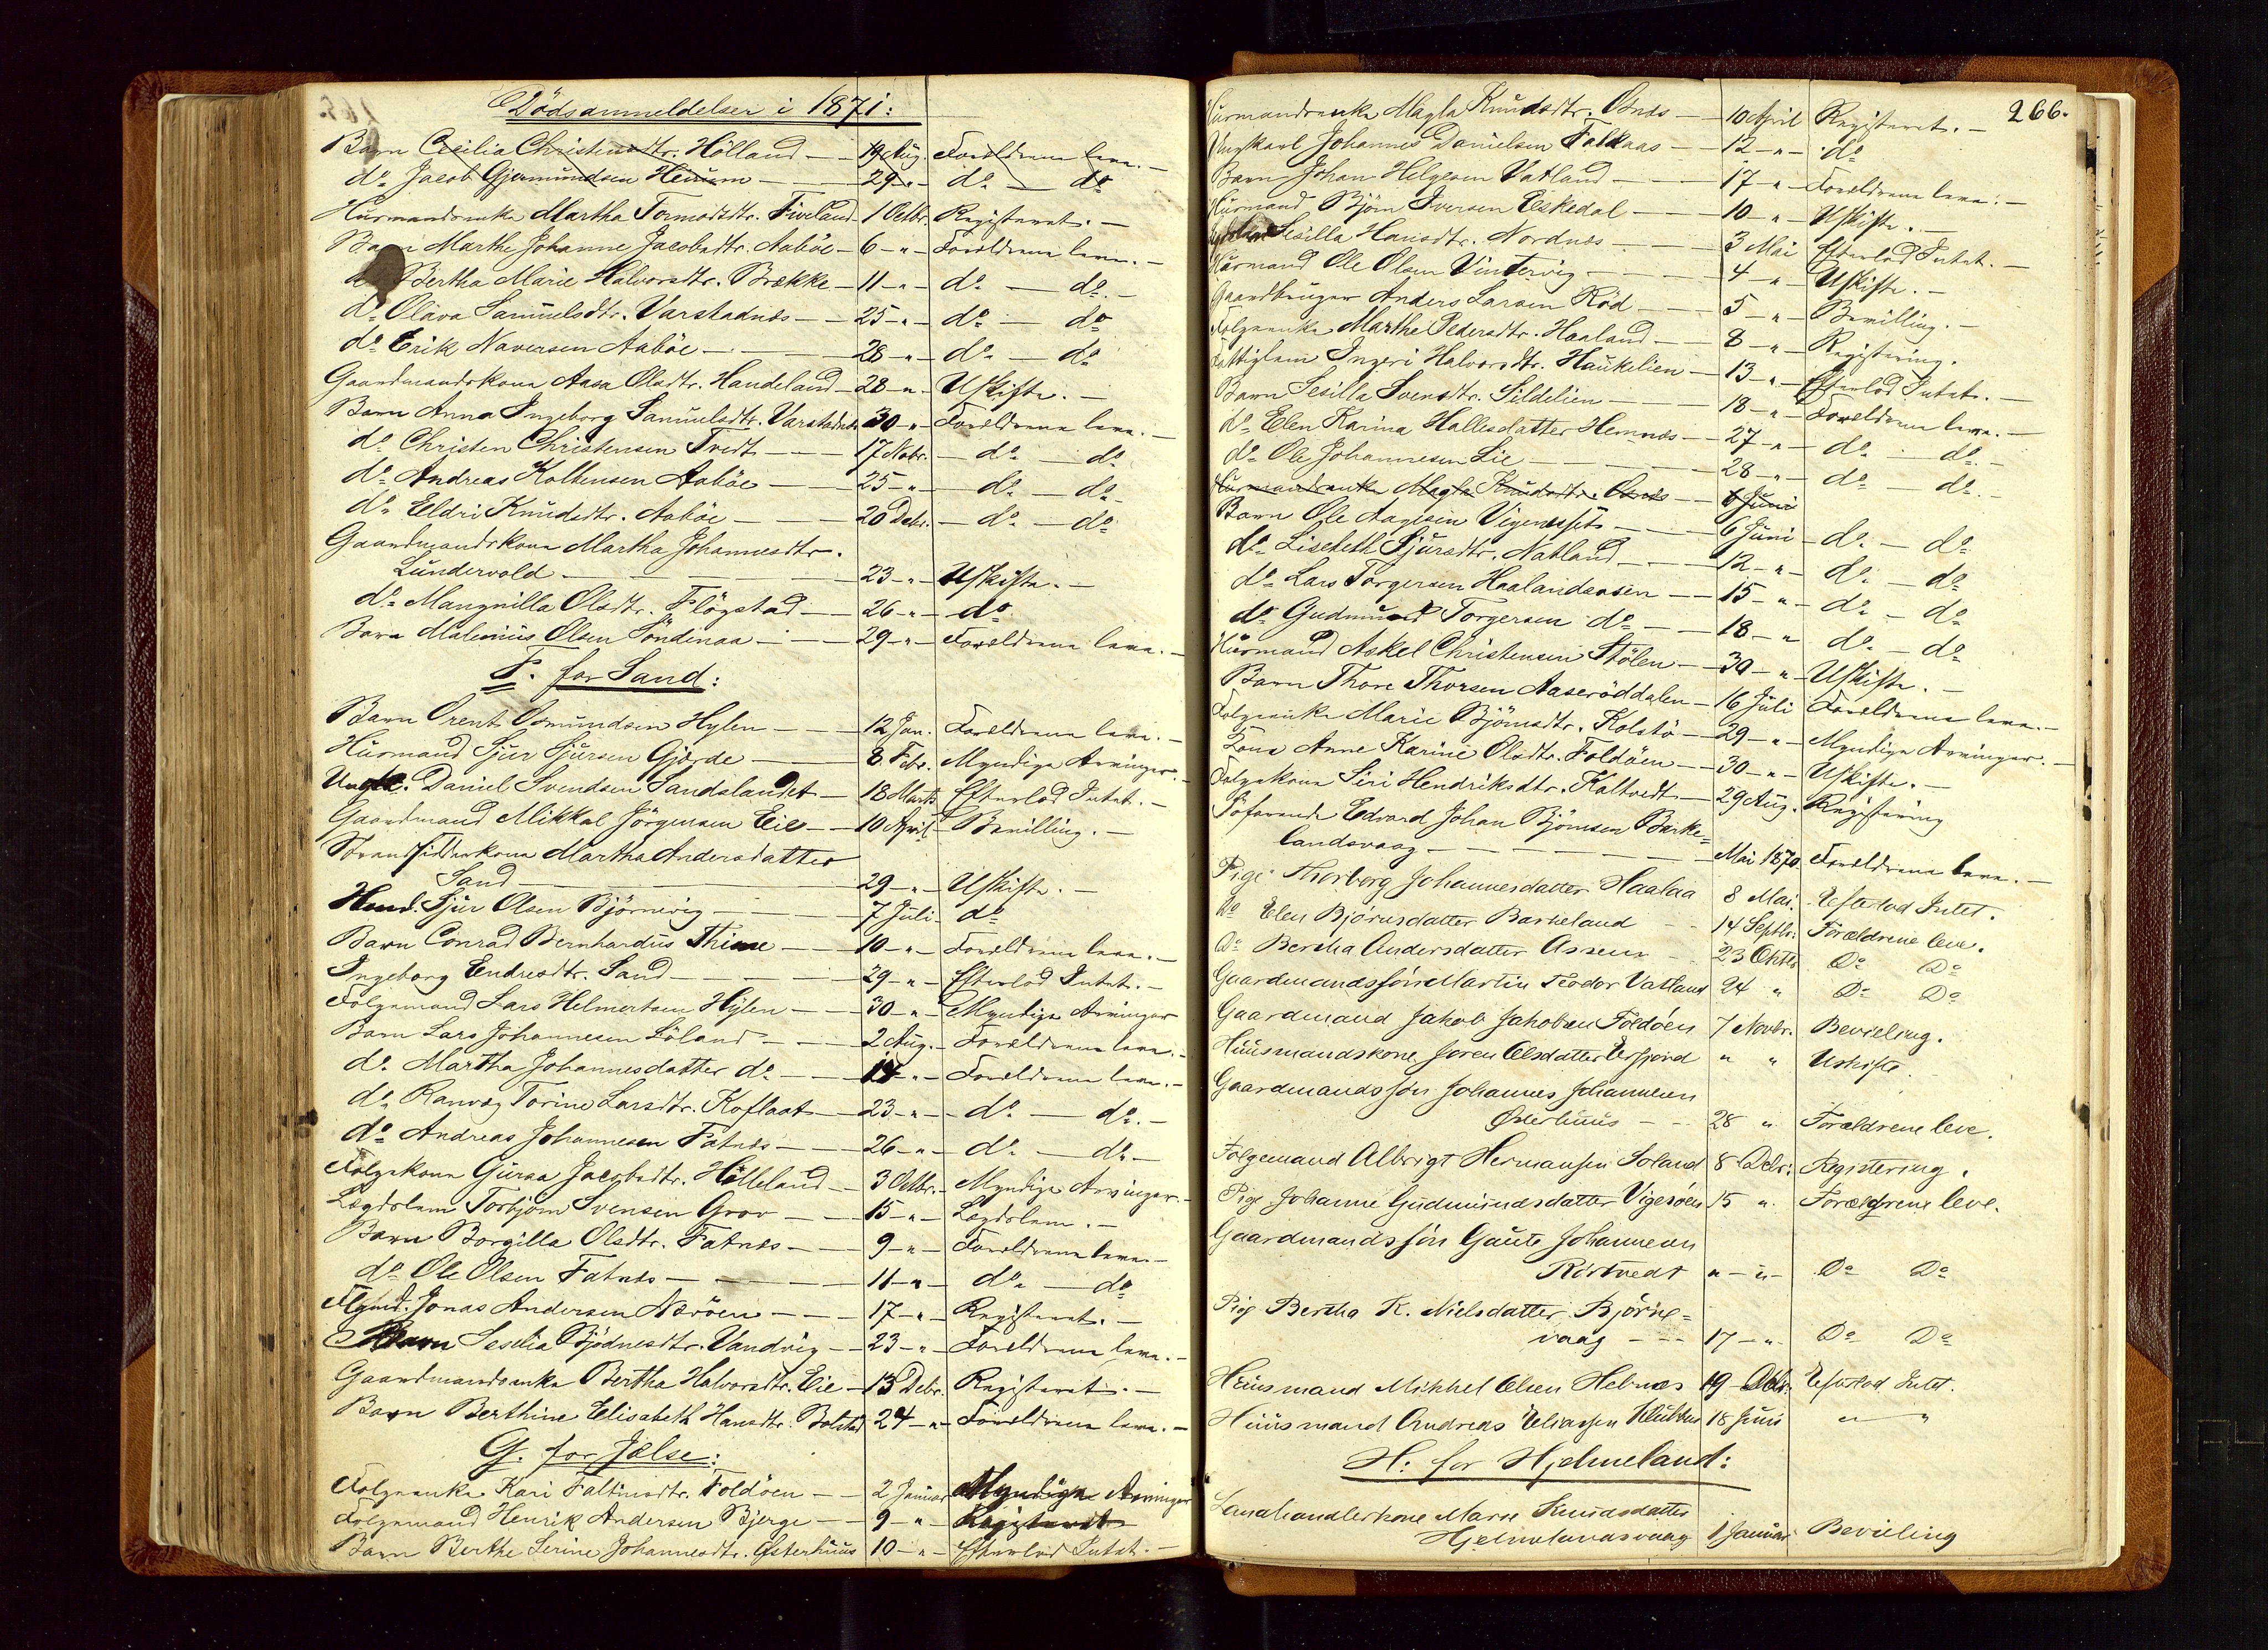 Dödsanmeldelser i 1871:
Barn Cecilia Christensdtr. Hölland — 19 Aug. Forældrene leve. —
do Jacob Gjermundsen Heuum — 29 " — do — do
Huusmandsenke Martha Tormodsdtr. Fiveland — 1 Octbr. Registeret. —
Barn Marthe Johanne Jacobsdtr. Aaböe — 6 — " — Forældrene leve. —
Bertha Marie Halvorsdtr. Brække — 11 — " — do — do. —
do Olava Samuelsdtr. Varstadnæs — 25 — " — do — do
do Erik Naversen Aaböe — 28 — " — do — do
Gaardmandskone Aasa Olsdtr. Handeland — 28 — " — Uskifte. —
Barn Anna Ingeborg Samuelsdtr. Varstadnæs 30 — " — Forældrene leve. —
do Christen Christensen Tvedt — 17 Novbr. — do — do
do Andreas Koltensen Aaböe — 25 — " — do — do
do Eldri Knudsdtr. Aaböe — 20 Debr. — do — do
Gaardmandskone Martha Johannesdtr.
Lundervold — 23 — " — Uskifte. —
do Mangnilla Olsdtr. Flögstad — 26 — " — do
Barn Malenius Olsen Söndenaa — 29 — " — Forældrene leve. —
F. for Sand:
Barn Orent Osmundsen Hylen — 12 Jan. Forældrene leve. —
Huusmand Sjur Sjursen Gjörde — 8 Febr. Myndige Arvinger. —
Ungk. Daniel Svendsen Sandslandet — 18 Marts Efterlod Intet. —
Gaardmand Mikkel Jörgensen Eie — 10 April — Bevilling. —
Strandsidderkone Martha Andersdatter
Sand — 29 — " — Uskifte. —
Hmd. Sjur Olsen Björnevig — 7 Juli — do
Barn Conrad Bernhardus Thime — 10 — " — Forældrene leve. —
Ingeborg Endresdtr. Sand — 29 — " — Efterlod Intet. —
Folgemand Lars Helmertsen Hylen — 30 — " — Myndige Arvinger
Barn Lars Johannesen Löland — 2 Aug. — Forældrene leve. —
do. Martha Johannesdatter do. — 14 — " — Forældrene leve. —
do Ranvæg Torine Larsdtr. Koflaat — 23 — " — do — do. —
do Andreas Johannesen Fatnes — 26 — " — do — do —
Folgekone Guroa Jacobsdtr. Hölleland — 3 Octbr. — Myndige Arvinger. —
Lægdslem Torbjörn Svensen Grov — 15 — " — Lægdslem. —
Barn Borgilla Olsdtr. Fatnes — 9 — " — Forældrene leve —
do Ole Olsen Fatnes — 11 — " — do — do
Flgmd. Jonas Andersen Næröen — 17 — " — Registeret. —
Barn Seselia Bjödnesdtr. Vandvig — 23 — " — Forældrene leve. —
Gaardmandsenke Bertha Halvorsdtr. Eie — 13 Debr. Registeret. —
Barn Berthine Elisabeth Hansdtr. Bolstad 24 — " — Forældrene leve. —
G. for Jelse:
Folgeenke Kari Faltinsdtr. Foldöen — 2 Januar Myndige Arvinger
Folgemand Henrik Andersen Bjerge — 9 — " — Registeret
Barn Berthe Serine Johannesdtr. Østerhuus 10 — " — Efterlod Intet. —
266.
Huusmandsenke Magla Knudsdtr. Osnes — 10 April Registeret. —
Ungkarl Johannes Danielsen Falkaas — 12 — " — do
Barn Johan Helgesen Vatland — 17 — " — Forældrene leve. —
Huusmand Björn Iversen Eskedal — 10 — " — Uskifte. —
Sesilla Hansdtr. Nordnes — 3 Mai Efterlod Intet. —
Huusmand Ole Olsen Vintervig — 4 — " — Uskifte. —
Gaardbruger Anders Larsen Röd — 5 — " — Bevilling. —
Folgeenke Marthe Pedersdtr. Haaland — 8 — " — Registering.
Fattiglem Ingeri Halvorsdtr. Haukelien — 13 — " — Efterlod Intet. —
Barn Sesilla Svensdtr. Sildelien — 18 — " — Forældrene leve. —
do Elen Karina Hallesdatter Hemnes — 27 — " — do — do. —
do Ole Johannesen Lie — 28 — " — do — do. —
Huusmandsenke Magla Knudsdtr. Osnes — 6 Juni
Barn Ole Aagesen Vigenessæt — 6 Juni — do — do
do Lisebeth Sjursdtr. Natland — 12 — " — do — do
do Lars Torgersen Haalandsosen — 15 — " — do — do
do Gudmund Torgersen do — 18 — " do — do
Huusmand Askel Christensen Stölen — 30 — " — Uskifte. —
Barn Thore Thorsen Aaseröddalen — 16 Juli Forældrene leve. —
Folgeenke Marie Björnsdtr. Kolstö — 29 — " — Myndige Arvinger. —
Kone Anne Karine Olsdtr. Foldöen — 30 — " — Uskifte. —
Folgekone Siri Hendriksdtr. Kaltvedt — 29 Aug. Registering
Söfarende Edvard Johan Björnsen Barke-
landsvaag — Mai 1870 Forældrene leve. —
Pige Thorborg Johannesdatter Haalaa 8 Mai. Efterlod Intet.
Do Elen Björnsdatter Barkeland — 14 Septbr: Forældrene leve.
Do Bertha Andersdatter Assem — 23 Oktb Do Do
Gaardmandssön Martin Teodor Vatland 24 " Do Do
Gaardmand Jakob Jakobsen Foldöen 7 Novbr. Bevieling.
Huusmandskone Joren Olsdatter Erfjord " " Uskifte.
Gaardmandssön Johannes Johannesen
Østerhuus — 28 " Forældrene leve.
Folgemand Albrigt Hermansen Soland 8 Debr: Registering.
Pige Johanne Gudmundsdatter Vigesöen 15 " Forældrene leve.
Gaardmandssön Gaute Johannesen
Rörtvedt " — " — Do Do
Pige Bertha K. Nielsdatter Björne-
vaag — 17 — " Do Do
Huusmand Mikkel Olsen Hebnes 19 Debr. Efterlod Intet.
Huusmand Andreas Eliassen Klubben 18 Juni " "
H: for Hjelmeland:
Landhandlerkone Maren Knudsdatter
Hjelmelandsvaag 1 Januar Bevieling